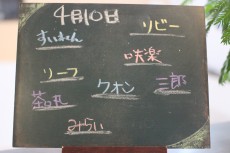 4月10日
リビー
すいれん
咲楽
リーフ
クオン
三郎
茶々丸
みらい